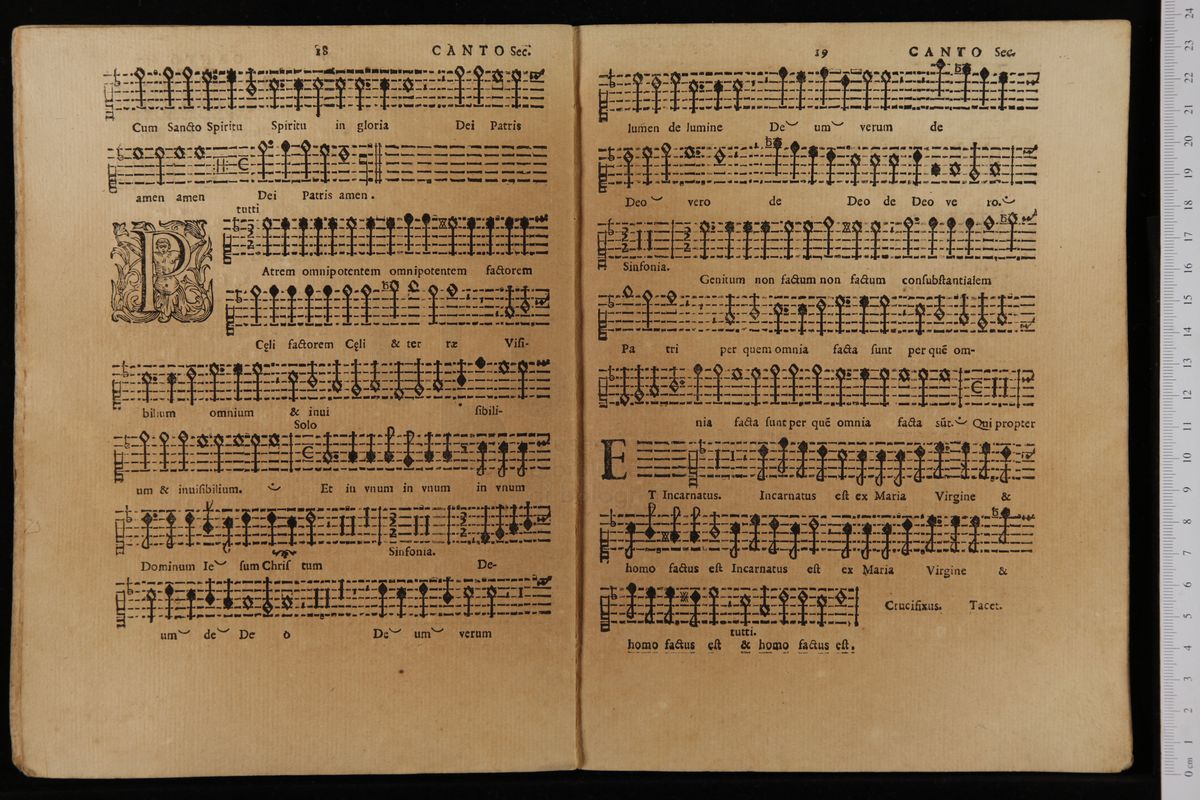 18 CANTO Sec.
Cum Sancto Spiritu Spiritu in gloria Dei Patris
amen amen Dei Patris amen.
tutti
P
Atrem omnipotentem omnipotentem factorem
Cęli factorem Cęli & ter ræ Visi-
bilium omnium & inui sibili-
Solo
um & inuisibilium. Et in vnum in vnum in vnum
Dominum Ie sum Chris tum Sinfonia. De-
um de De o De um verum
19 CANTO Sec.
lumen de lumine De um verum de
Deo vero de Deo de Deo ve ro.
Sinfonia. Genitum non factum non factum consubstantialem
Pa tri per quem omnia facta sunt per quē om-
nia facta sunt per quē omnia facta sūt. Qui propter
E
T Incarnatus. Incarnatus est ex Maria Virgine &
homo factus est Incarnatus est ex Maria Virgine &
Crucifixus. Tacet.
tutti.
homo factus est & homo factus est.
24 23 22 21 20 19 18 17 16 15 14 13 12 11 10 9 8 7 6 5 4 3 2 1 0 cm